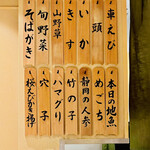 車えび
頭
いか
きす
山野草
旬野菜
そばがき
本日の地魚
めごち
の人参
竹の子
ハマグリ
穴子
桜えびかき揚げ